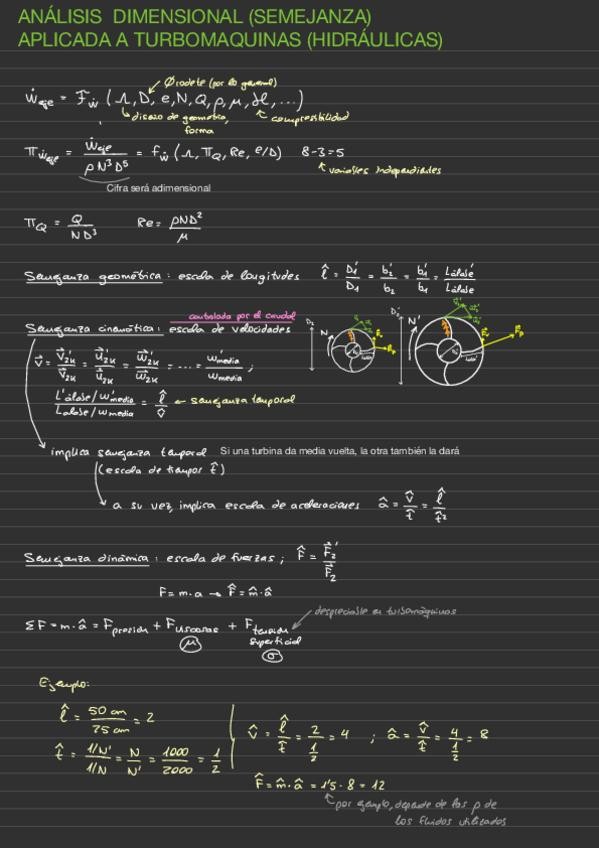 ANÁLISIS DIMENSIONAL (SEMEJANZA)
APLICADA A TURBOMAQUINAS (HIDRÁULICAS)
Ørodete (por lo general)
Ẇeje = FẆ (Λ, D, e, N, Q, ρ, μ, ℋ, ...)
diseño de geometría, forma
compresibilidad
ΠẆeje = Ẇeje / ρN³D⁵ = fẆ (Λ, ΠQ, Re, e/D) 8-3=5
variables independientes
Cifra será adimensional
ΠQ = Q / ND³ Re = ρND² / μ
Semejanza geométrica: escala de longitudes l̂ = D₁' / D₁ = b₂' / b₂ = b₁' / b₁ = Lálabe' / Lálabe
controlada por el caudal
Semejanza cinemática: escala de velocidades
D₂ N D₂' N'
v̂ = v⃗₂k' / v⃗₂k = u⃗₂k' / u⃗₂k = w⃗₂k' / w⃗₂k = ... = w'media / wmedia ;
L'álabe/w'media / Lálabe/wmedia = l̂ / v̂ ← semejanza temporal
implica semejanza temporal Si una turbina da media vuelta, la otra también la dará
(escala de tiempos t̂)
a su vez, implica escala de aceleraciones â = v̂ / t̂ = l̂ / t̂²
Semejanza dinámica: escala de fuerzas; F̂ = F⃗₂' / F⃗₂
F = m·a → F̂ = m̂·â
despreciable en turbomáquinas
ΣF = m·a = Fpresión + Fviscosas + Ftensión superficial
μ σ
Ejemplo:
l̂ = 50 cm / 25 cm = 2
v̂ = l̂ / t̂ = 2 / 1/2 = 4 ; â = v̂ / t̂ = 4 / 1/2 = 8
t̂ = 1/N' / 1/N = N / N' = 1000 / 2000 = 1/2
F̂ = m̂·â = 1'5 · 8 = 12
por ejemplo, depende de las ρ de
los fluidos utilizados